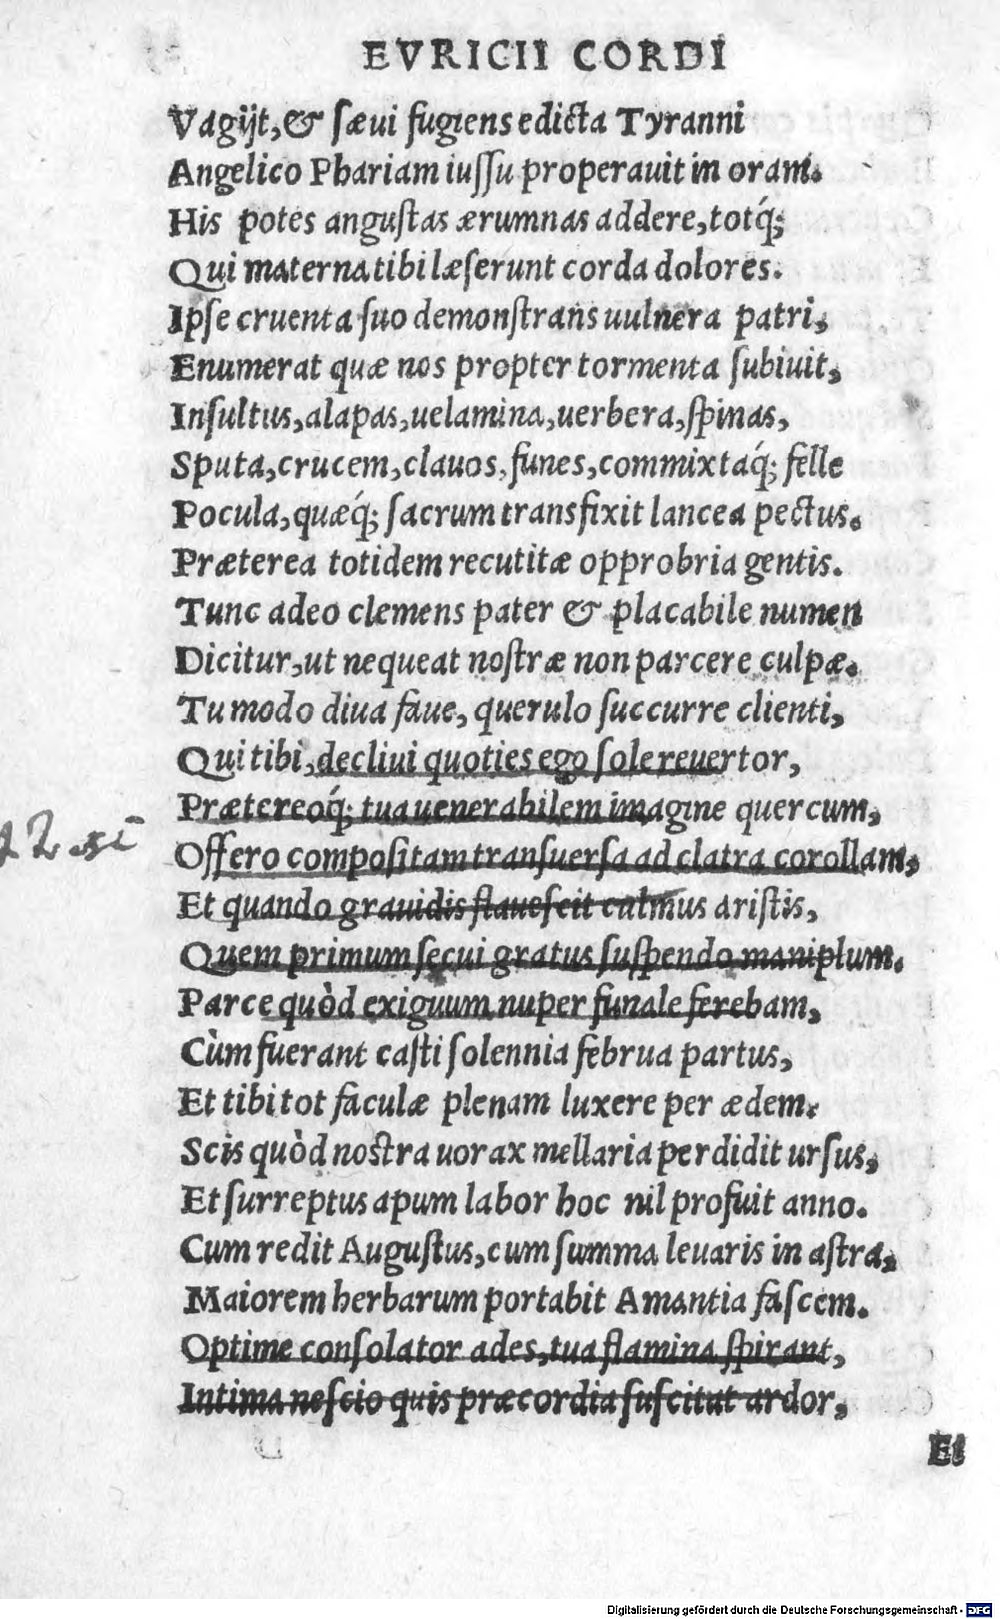 EVRICII CORDI
Vagijt, & sæui fugiens edicta Tyranni
Angelico Phariam iussu properauit in oram.
His potes angustas ærumnas addere, totq́;
Qui materna tibi læserunt corda dolores.
Ipse cruenta suo demonstrans uulnera patri,
Enumerat quæ nos propter tormenta subiuit,
Insultus, alapas, uelamina, uerbera, spinas,
Sputa, crucem, clauos, funes, commixtaq́; felle
Pocula, quæq́; sacrum transfixit lancea pectus.
Præterea totidem recutitæ opprobria gentis.
Tunc adeo clemens pater & placabile numen
Dicitur, ut nequeat nostræ non parcere culpæ.
Tu modo diua faue, querulo succurre clienti,
Qui tibi, decliui quoties ego sole reuertor,
Prætereoq́; tua uenerabilem imagine quercum,
Offero compositam transuersa ad clatra corollam,
Et quando grauidis flauescit culmus aristis,
Quem primum secui gratus suspendo maniplum.
Parce quòd exiguum nuper funale ferebam,
Cùm fuerant casti solennia februa partus,
Et tibi tot faculæ plenam luxere per ædem.
Scis quòd nostra uorax mellaria perdidit ursus,
Et surreptus apum labor hoc nil profuit anno.
Cum redit Augustus, cum summa leuaris in astra,
Maiorem herbarum portabit Amantia fascem.
Optime consolator ades, tua flamina spirant,
Intima nescio quis præcordia suscitat ardor,
Et
Digitalisierung gefördert durch die Deutsche Forschungsgemeinschaft - DFG